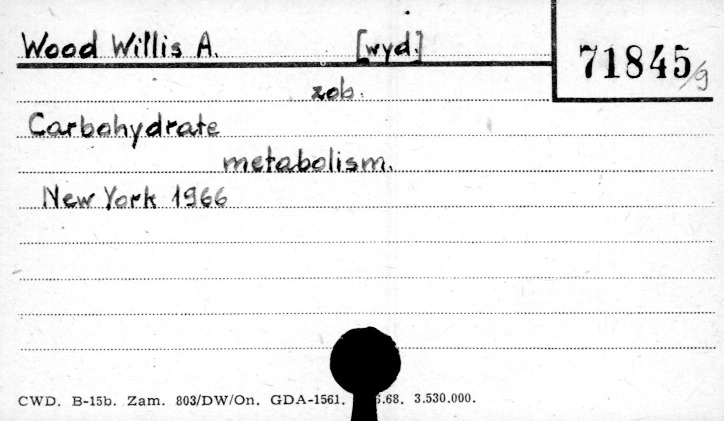 Wood Willis A. [wyd.]
71845/9
zob.
Carbohydrate
metabolism.
New York 1966
CWD. B-15b. Zam. 803/DW/On. GDA-1561. .68. 3.530.000.